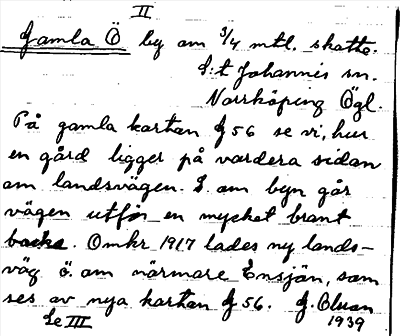 II
Gamla Ö by om 3/4 mtl. skatte.
S:t Johannis sn.
Norrköping Ögl.
På gamla kartan J 56 se vi, hur
en gård ligger på vardera sidan
om landsvägen. S. om byn går
vägen utför en mycket brant
backe. Omkr 1917 lades ny lands-
väg ö. om närmare Ensjön, som
ses av nya kartan J 56. G. Oluon
Se III 1939